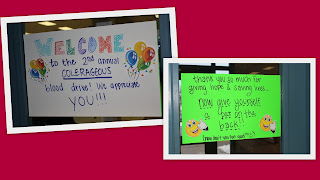 WELCOME
to the 2nd annual
COLERAGEOUS
blood drive! We appreciate
YOU!!!
thank you so much for
giving hope & saving lives...
Now give yourself
a pat on the
back!!